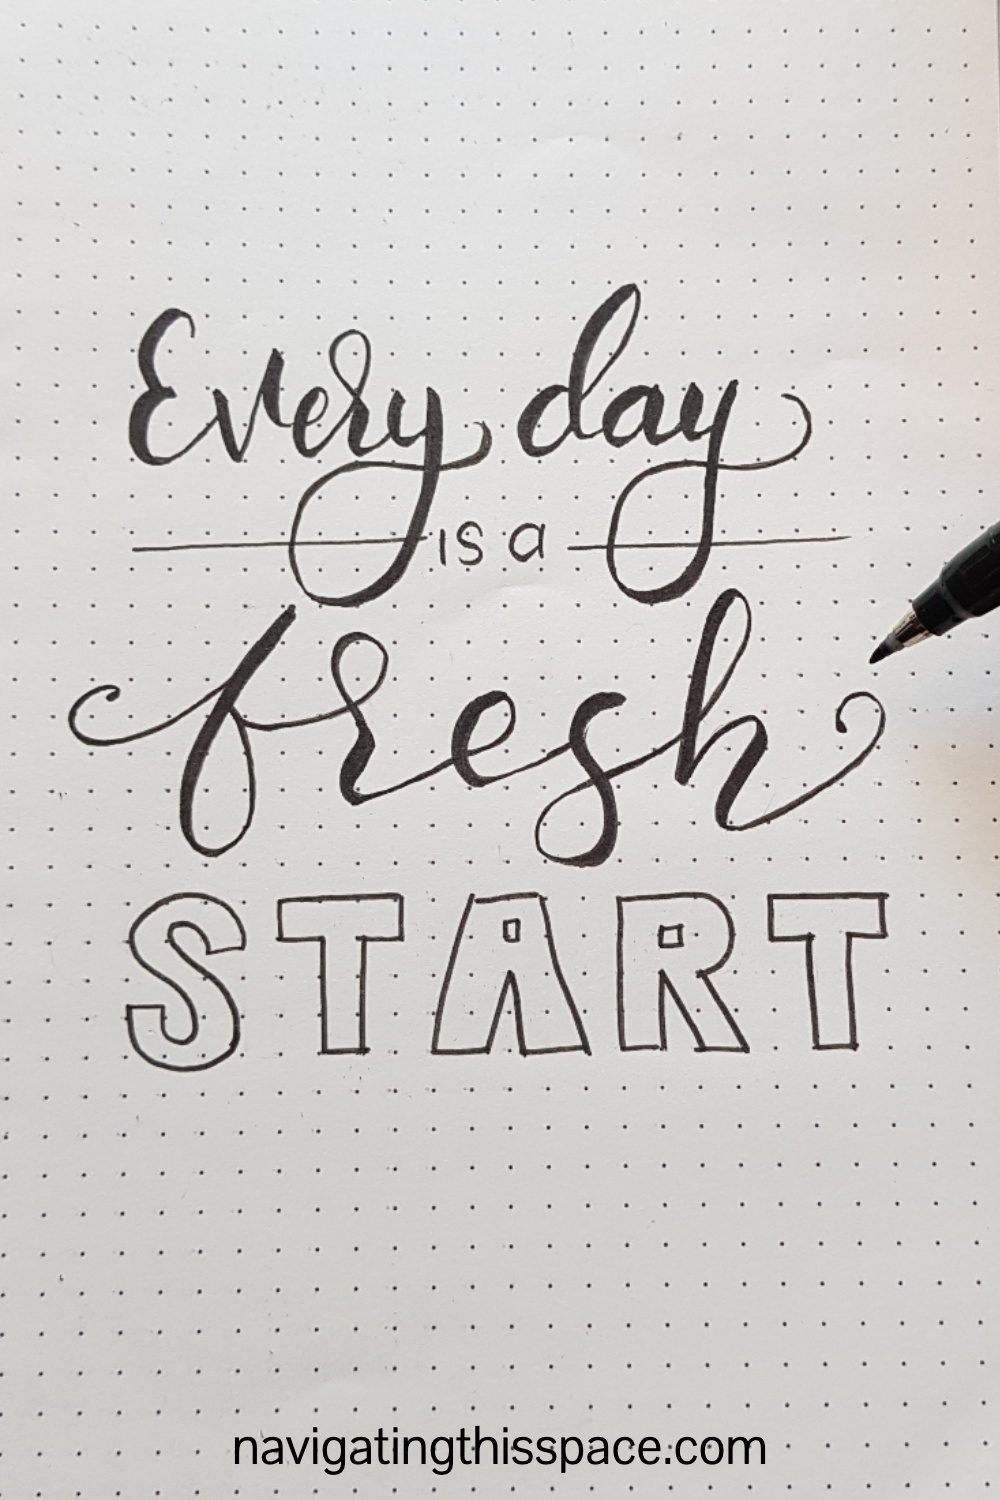 Every day
is a
fresh
START
navigatingthisspace.com